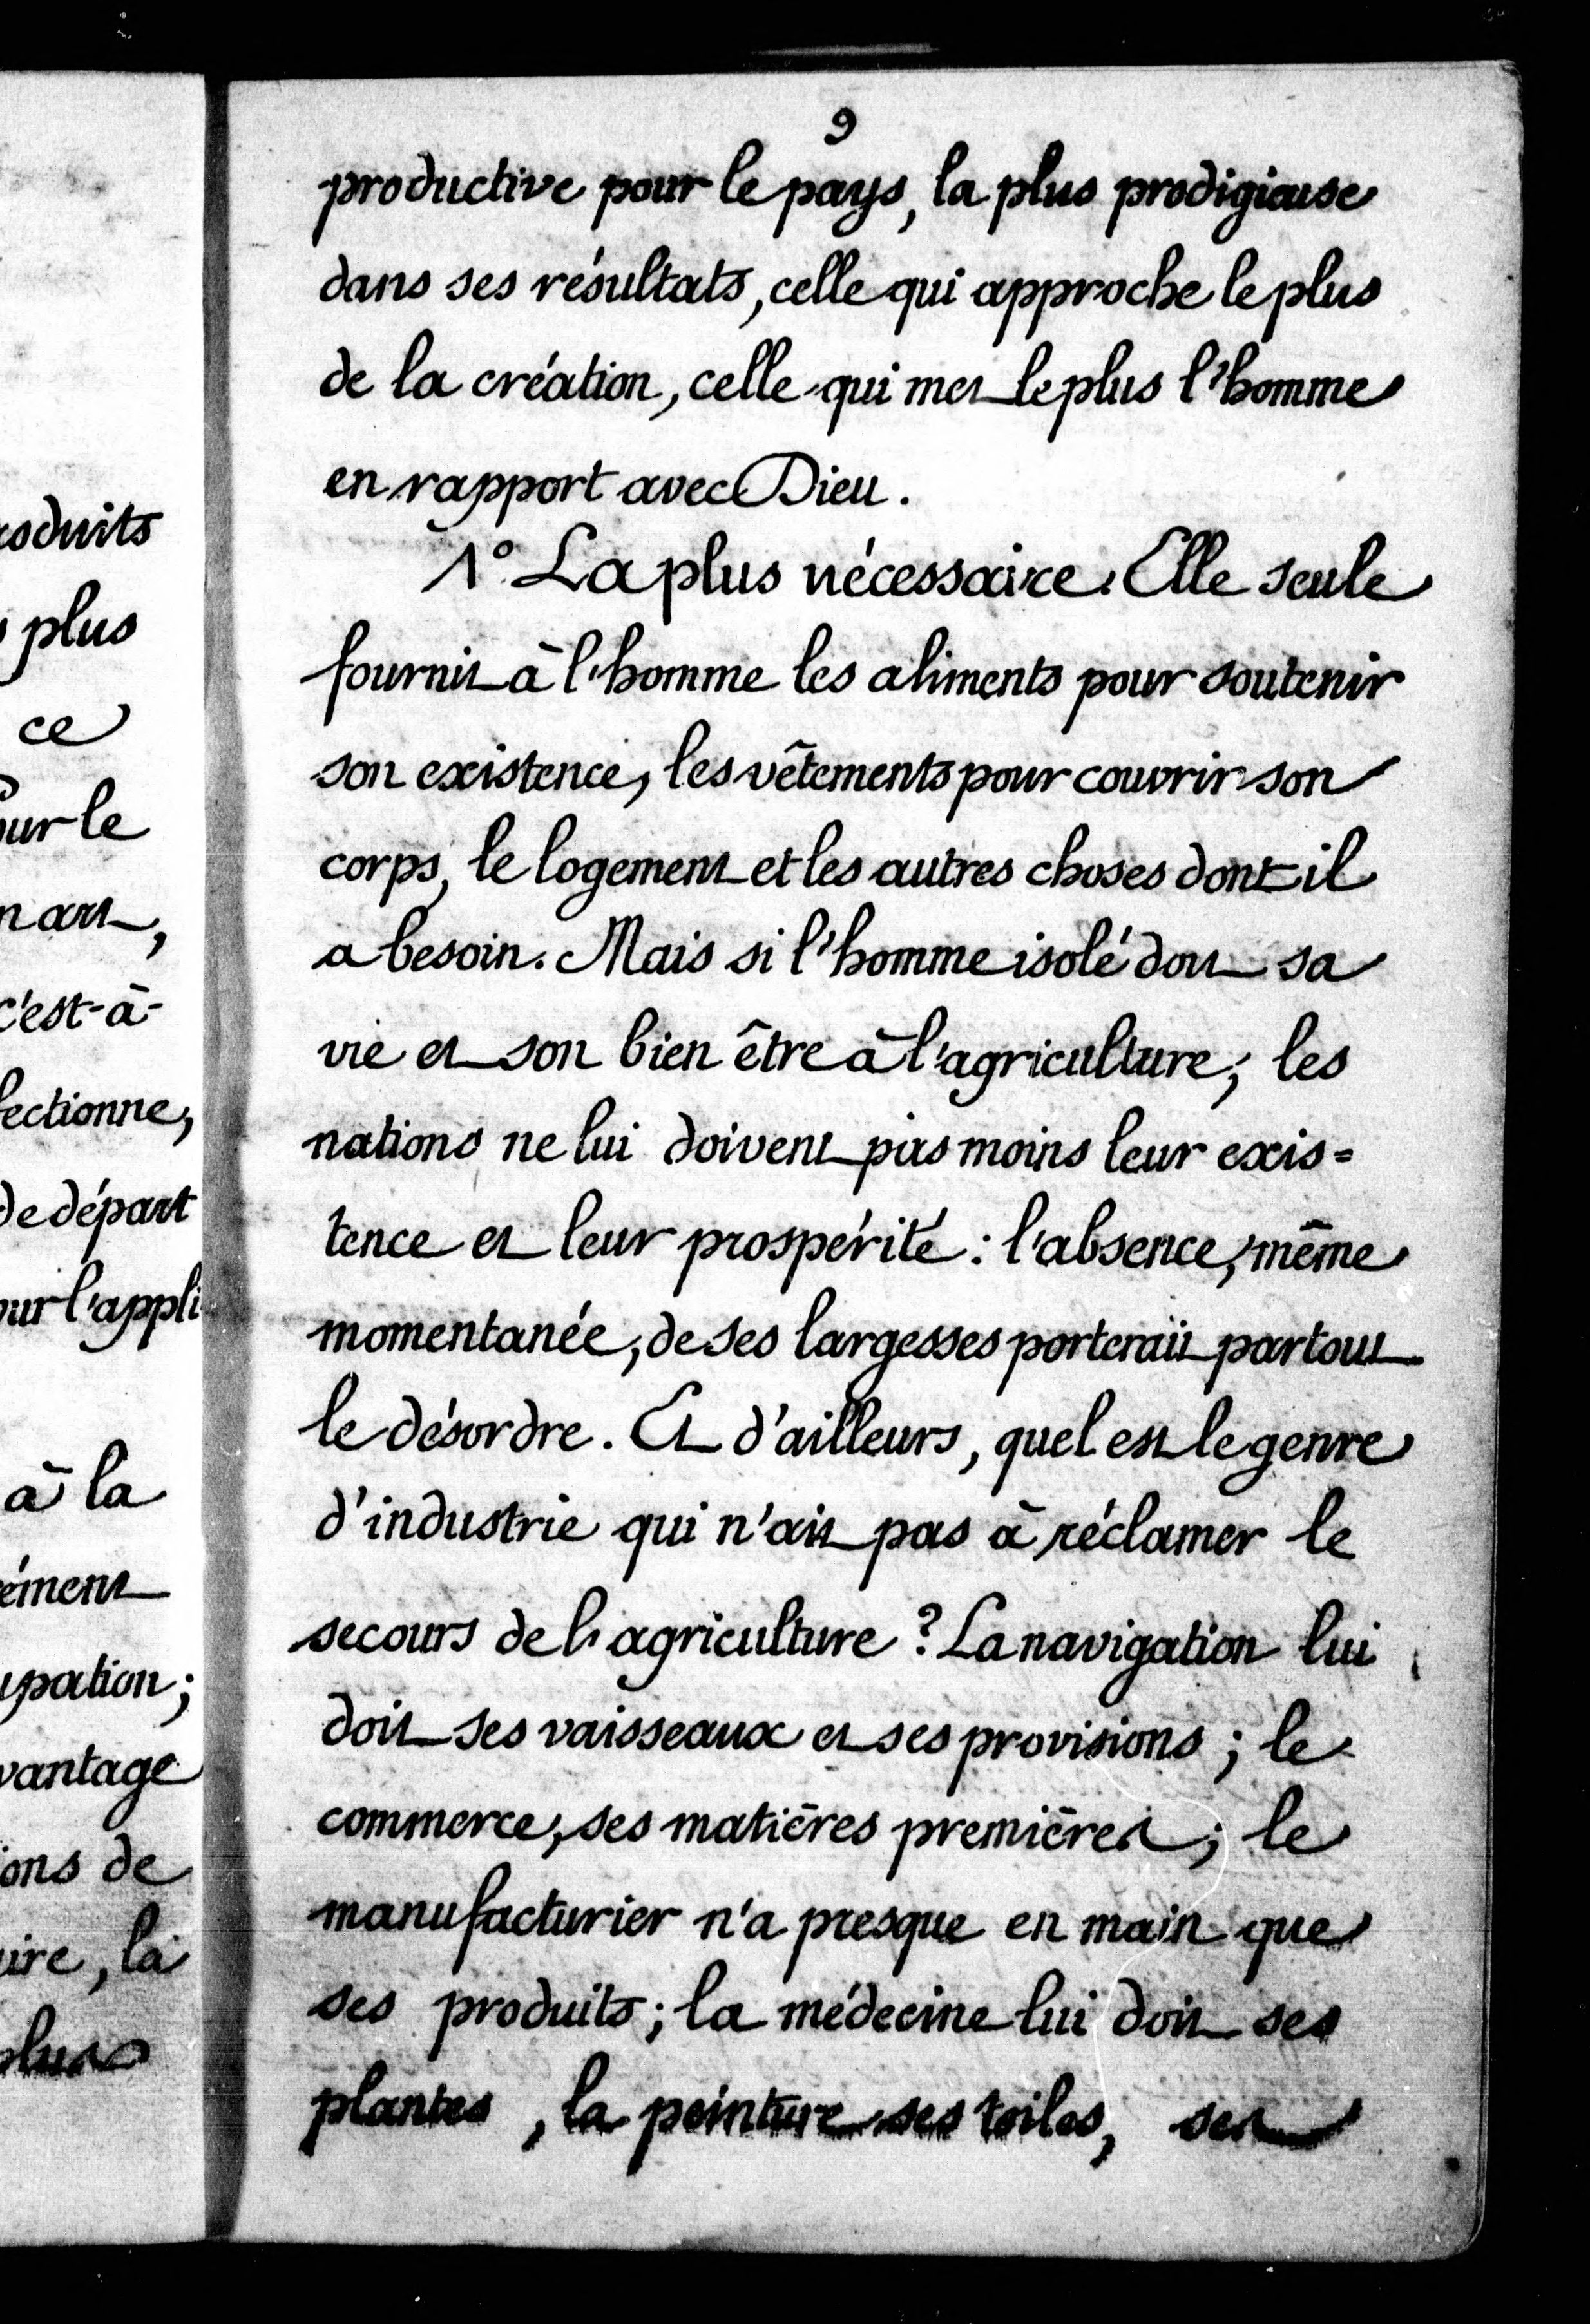 roduits
plus
ce
ur le
n art,
c'est-à-
fectionne,
de départ
ur l'appli
à la
rément
upation;
vantage
ons de
ire, la
plus
9
productive pour le pays, la plus prodigieuse
dans ses résultats, celle qui approche le plus
de la création, celle qui met le plus l'homme
en rapport avec Dieu.
1° La plus nécessaire. Elle seule
fournit à l'homme les aliments pour soutenir
son existence, les vêtements pour couvrir son
corps, le logement et les autres choses dont il
a besoin. Mais si l'homme isolé doit sa
vie et son bien être à l'agriculture; les
nations ne lui doivent pas moins leur exis=
tence et leur prospérité : l'absence, même
momentanée, de ses largesses porterait partout
le désordre. Et d'ailleurs, quel est le genre
d'industrie qui n'ait pas à réclamer le
secours de l'agriculture ? La navigation lui
doit ses vaisseaux et ses provisions ; le
commerce, ses matières premières ; le
manufacturier n'a presque en main que
ses produits ; la médecine lui doit ses
plantes , la peinture ses toiles, ses